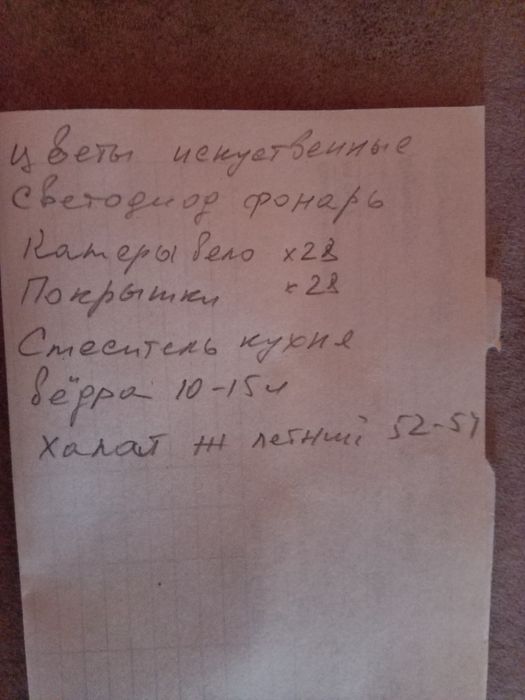 Цветы искуственные
Светодиод фонарь
Камеры вело х28
Покрышки х28
Смеситель кухня
Вёдра 10-15л
Халат ж летний 52-54